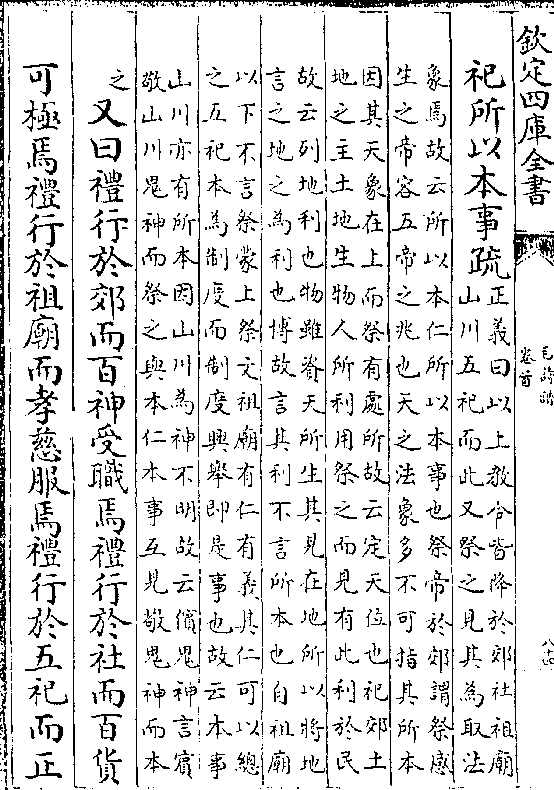 欽定四庫全書
毛詩譜
卷首
八十四
祀所以本事疏
正義曰以上教令皆降於郊社祖廟
山川五祀而此又祭之見其為取法
象焉故云所以本仁所以本事也祭帝於郊謂祭感
生之帝容五帝之兆也天之法象多不可指其所本
因其天象在上而祭有處所故云定天位也祀郊土
地之主土地生物人所利用祭之而見有此利於民
故云列地利也物雖資天所生其見在地所以將地
言之地之為利也博故言其利不言所本也自祖廟
以下不言祭蒙上祭文祖廟有仁有義其仁可以總
之五祀本為制度而制度興舉即是事也故云本事
山川亦有所本因山川為神不明故云儐鬼神言賓
敬山川鬼神而祭之與本仁本事互見敬鬼神而本
之又曰禮行於郊而百神受職焉禮行於社而百貨
可極焉禮行於祖廟而孝慈服焉禮行於五祀而正